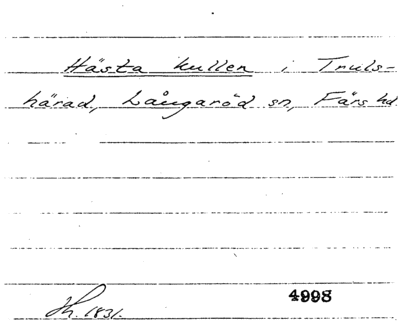 Hästa kullen i Truls-
härad, Långaröd sn, Färs hd
Jh. 1831.
4998